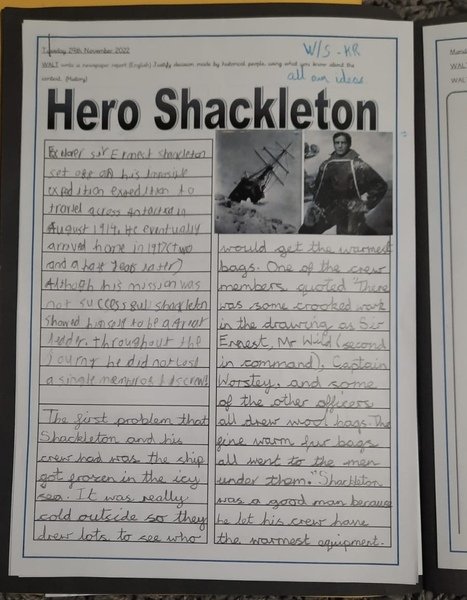 Tuesday 29th November 2022
W/S - KR
WALT write a newspaper report (English) Justify decision made by historical people, using what you know about the
context. (History)
all own ideas
Hero Shackleton
Explorer sir Ernest shackleton
set off on his impossible
expedition expedition to
travel across Antartica in
August 1914. He eventually
arrived home in 1917 (two
and a half years later)
Although his mission was
not successful shackleton
showed himself to be a great
leader. throughout the
journy he did not lost
a single member of his crew
The first problem that
Shackleton and his
crew had was the ship
got frozen in the icy
sea. It was really
cold outside so they
drew lots to see who
would get the warmest
bags. One of the crew
members quoted "There
was some crooked work
in the drawing as Sir
Ernest, Mr Wild (second
in command), Captain
Worsley, and some
of the other officers
all drew wool bags. The
fine warm fur bags
all went to the men
under them." Shackleton
was a good man because
he let his crew have
the warmest equipment.